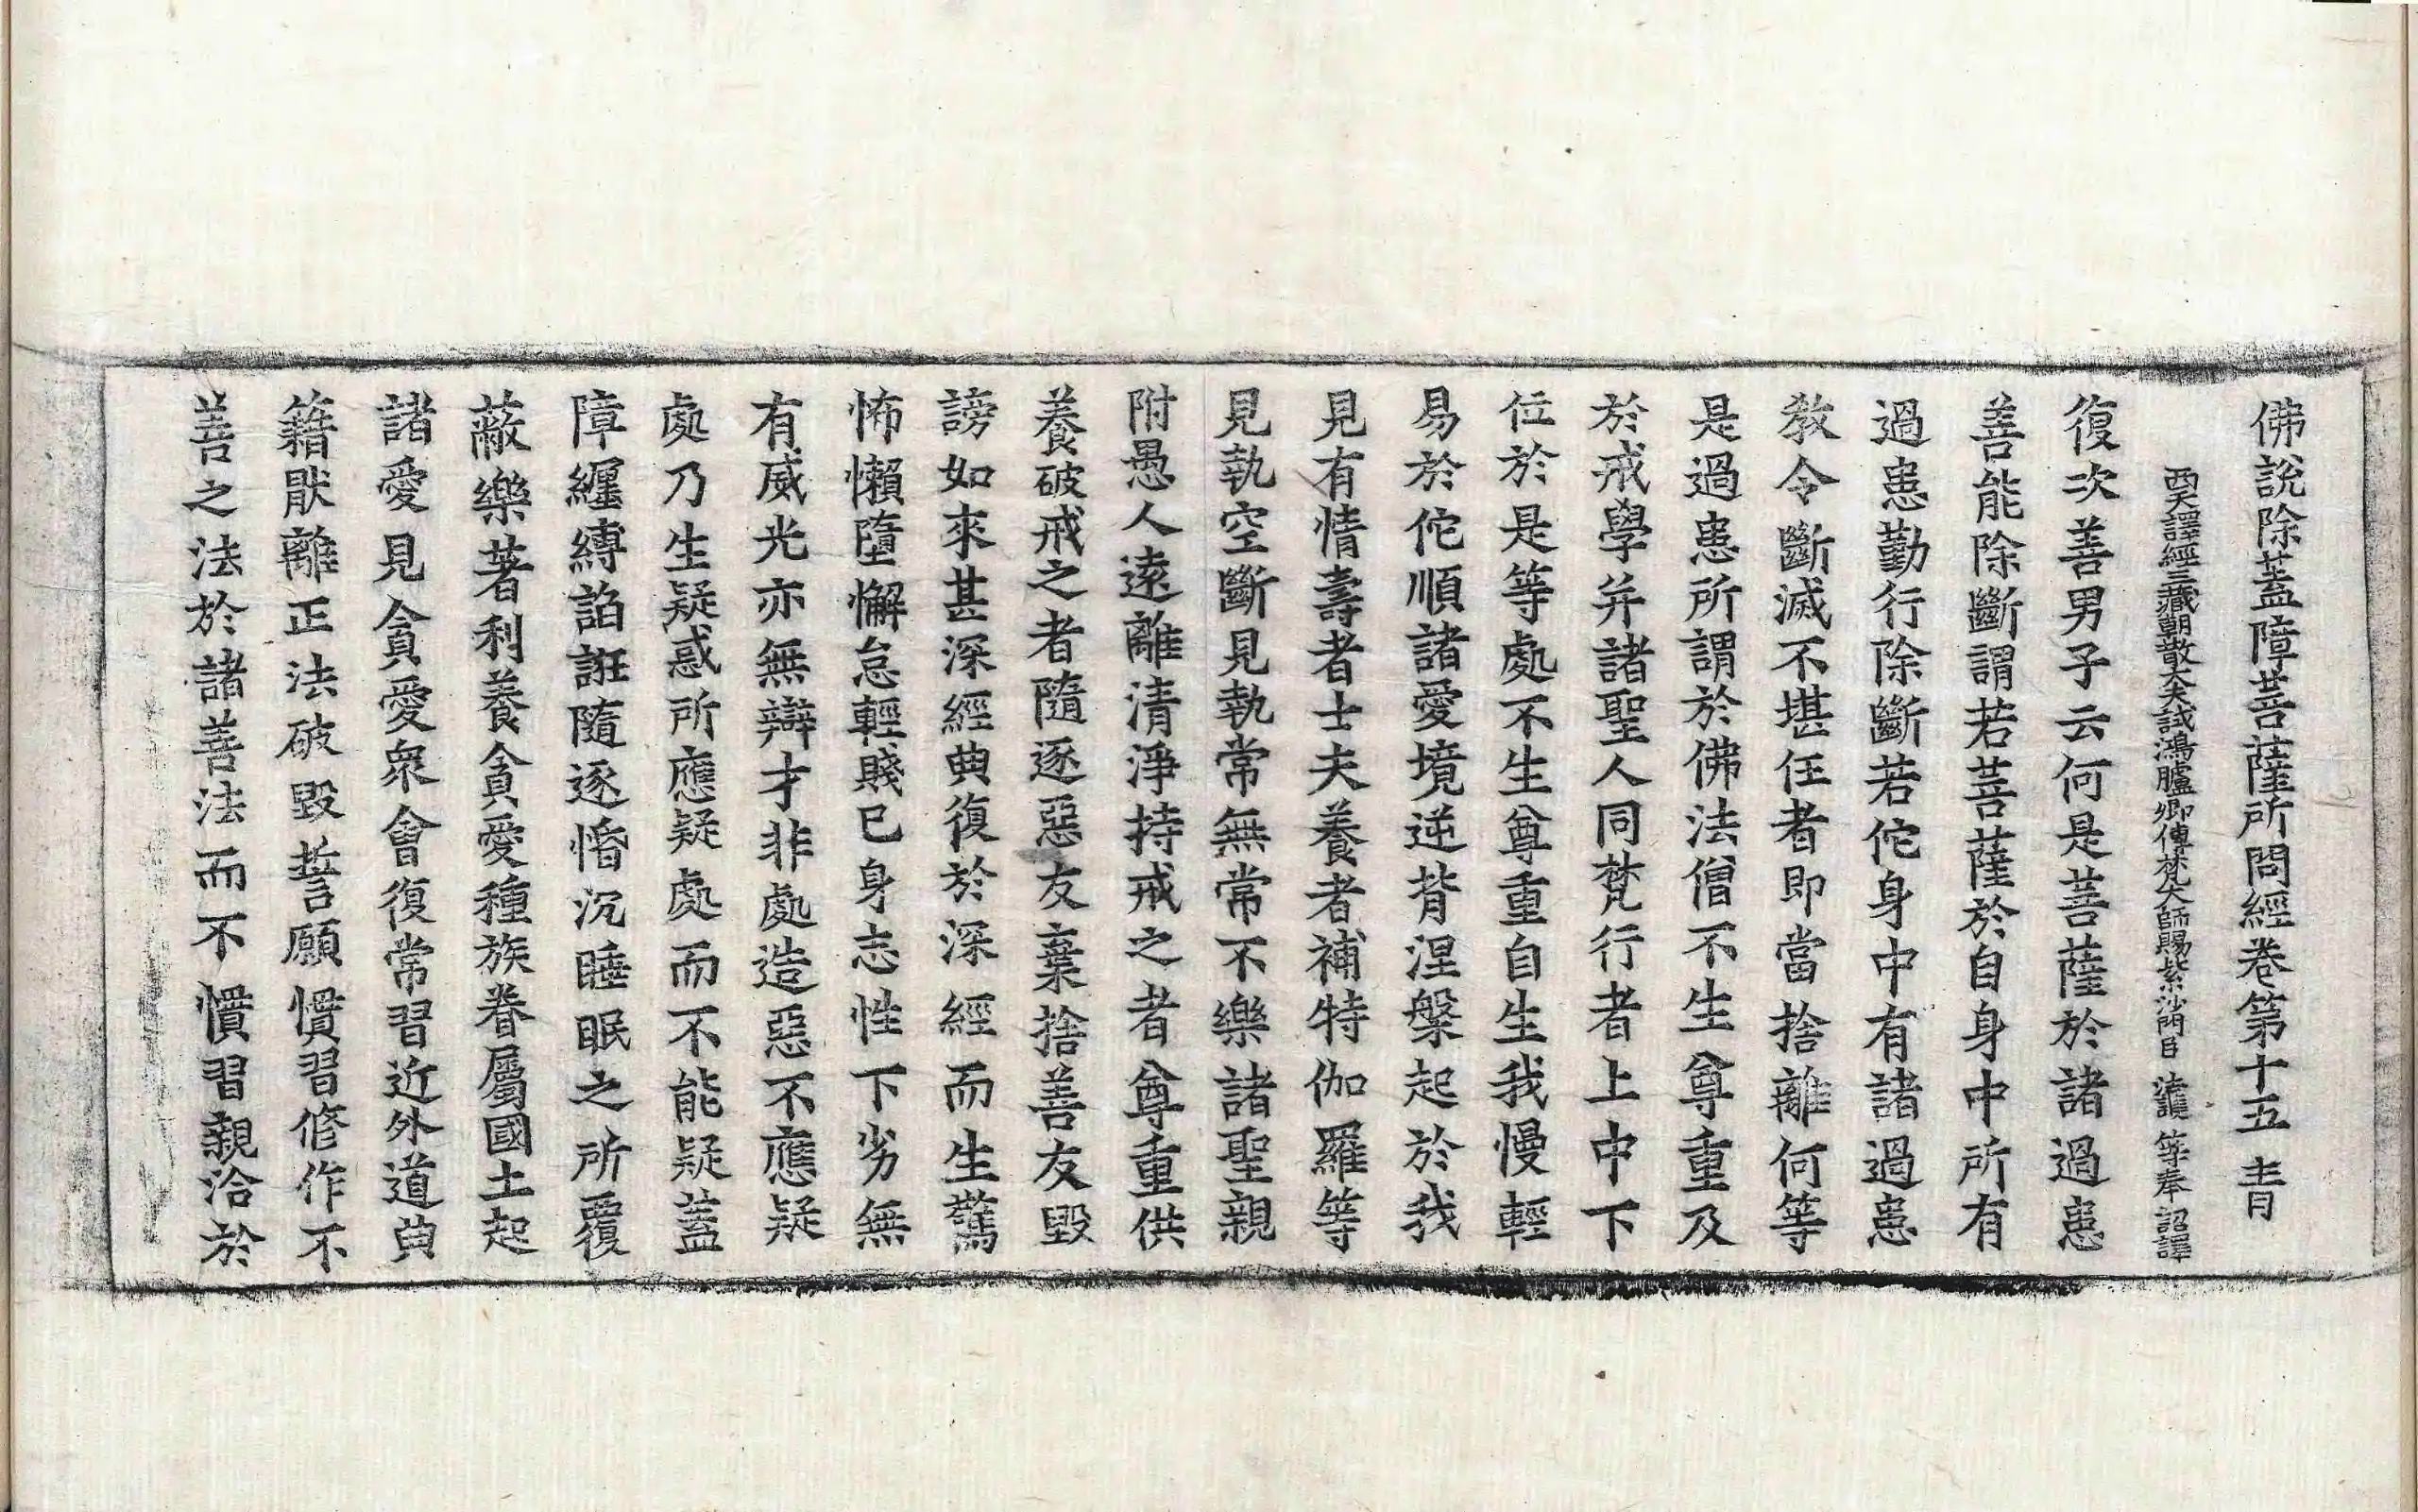 佛說除蓋障菩薩所問經卷第十五 青
西天譯經三藏朝散大夫試鴻臚卿傳梵大師賜紫沙門臣 法護 等奉 詔譯
復次善男子云何是菩薩於諸過患
善能除斷謂若菩薩於自身中所有
過患勤行除斷若佗身中有諸過患
教令斷滅不堪任者即當捨離何等
是過患所謂於佛法僧不生尊重及
於戒學并諸聖人同梵行者上中下
位於是等處不生尊重自生我慢輕
易於佗順諸愛境逆背涅槃起於我
見有情壽者士夫養者補特伽羅等
見執空斷見執常無常不樂諸聖親
附愚人遠離清淨持戒之者尊重供
養破戒之者隨逐惡友棄捨善友毀
謗如來甚深經典復於深經而生驚
怖懶墮懈怠輕賤己身志性下劣無
有威光亦無辯才非處造惡不應疑
處乃生疑惑所應疑處而不能疑蓋
障纏縛諂誑隨逐惛沉睡眠之所覆
蔽樂著利養貪愛種族眷屬國土起
諸愛見貪愛衆會復常習近外道典
籍猒離正法破毀誓願慣習修作不
善之法於諸善法而不慣習親洽於